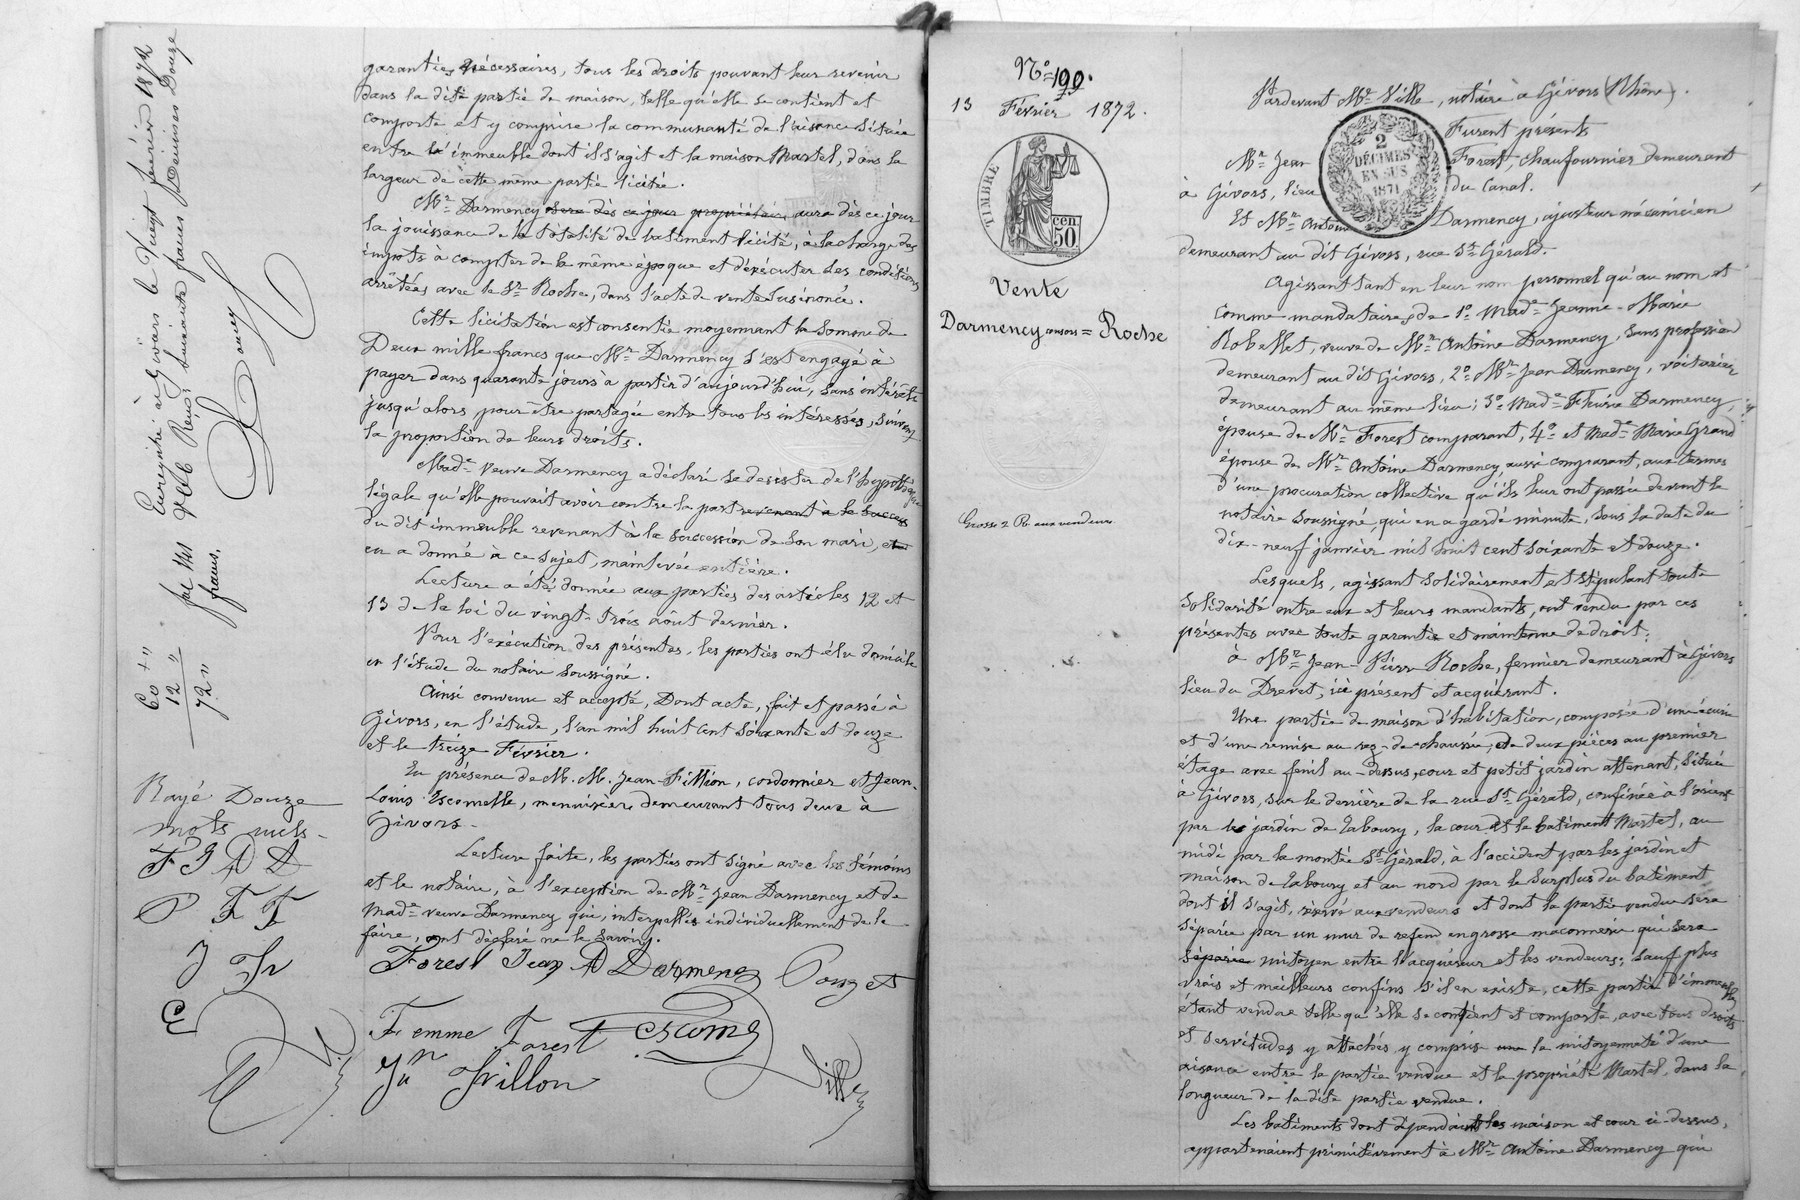 garanties nécessaires, tous les droits pouvant leur revenir
dans la dite partie de maison, telle qu'elle se contient et
comporte et y comprise la communauté de l'aisance située
entre l'immeuble dont il s'agit et la maison Martel, dans la
largeur de cette même partie licitée.
Mr. Darmency sera dès ce jour propriétaire, aura dès ce jour
la jouissance de la totalité du batiment licité, à la charge des
impots à compter de la même époque et d'exécuter les conditions
arrêtées avec le Sr. Roche, dans l'acte de vente susénoncé.
Cette licitation est consentie moyennant la somme de
Deux mille francs que Mr. Darmency s'est engagé à
payer dans quarante jours à partir d'aujourd'hui, sans intérêts
jusqu'alors pour être partagée entre tous les intéressés, suivant
la proportion de leurs droits.
Made. veuve Darmency a déclaré se desister de l'hypothèque
légale qu'elle pouvait avoir contre la part revenant à la success
du dit immeuble revenant à la succession de son mari, et
en a donné à ce sujet, mainlevée entière.
Lecture a été donnée aux parties des articles 12 et
13 de la loi du vingt-trois août dernier.
Pour l'exécution des présentes, les parties ont élu domicile
en l'étude du notaire soussigné.
Ainsi convenu et accepté, Dont acte, fait et passé à
Givors, en l'étude, l'an mil huit cent soixante et douze
et le treize Février.
En présence de M. M. Jean Fillion, cordonnier et Jean-
Louis Escomelle, menuisier, demeurant tous deux à
Givors.
Lecture faite, les parties ont signé avec les témoins
et le notaire, à l'exception de Mr. Jean Darmency et de
Made. veuve Darmency qui, interpellés individuellement de le
faire, ont déclaré ne le savoir.
Forest Jean A Darmency Pouzet
Femme Forest Escome
Jn Frillon
Ville
Enregistré à Givors le Vingt février 1872
francs.
60 "
12 "
72 "
Rayé Douze
mots nuls.
F J A D
P F F
J Fr
E
No. 199.
13 Février 1872.
TIMBRE
50 cen
Vente
Darmency consors = Roche
Grosse 2 R aux vendeurs
Pardevant Me. Ville, notaire à Givors (Rhône).
Furent présents
2
DÉCIMES
EN SUS
1871
Mr. Jean Forest, chaufournier demeurant
à Givors, lieu du Canal.
Et Mr. Antoine Darmency, ajusteur mécanicien
demeurant au dit Givors, rue St. Gérald.
Agissant tant en leur nom personnel qu'au nom et
comme mandataires de 1o. Made. Jeanne-Marie
Robellet, veuve de Mr. Antoine Darmency, sans profession
demeurant au dit Givors, 2o. Mr. Jean Darmency, voiturier
demeurant au même lieu; 3o. Made. Fleurie Darmency,
épouse de Mr. Forest comparant, 4o. et Made. Marie Grand
épouse de Mr. Antoine Darmency, aussi comparant, aux termes
d'une procuration collective qu'ils leur ont passée devant le
notaire soussigné, qui en a gardé minute, sous la date du
dix-neuf janvier mil huit cent soixante et douze.
Lesquels, agissant solidairement et stipulant toute
solidarité entre eux et leurs mandants, ont vendu par ces
présentes avec toute garantie et maintenue de droit;
à Mr. Jean-Pierre Roche, fermier demeurant à Givors
lieu du Drevet, ici présent et acquérant.
Une partie de maison d'habitation, composée d'une écurie
et d'une remise au rez-de-chaussée, de deux pièces au premier
étage avec fenil au-dessus, cour et petit jardin attenant, située
à Givors, sur le derrière de la rue St. Gérald, confinée à l'orient
par le jardin de Laboury, la cour et le batiment Martel, au
midi par la montée St. Gérald, à l'occident par les jardin et
maison de Laboury et au nord par le surplus du batiment
dont il s'agit, réservé aux vendeurs et dont la partie vendue sera
séparée par un mur de refend en grosse maçonnerie qui sera
séparée mitoyen entre l'acquéreur et les vendeurs; sauf plus
vrais et meilleurs confins s'il en existe, cette partie d'immeuble
étant vendue telle qu'elle se contient et comporte, avec tous droits
et servitudes y attachés y compris une la mitoyenneté d'une
aisance entre la partie vendue et la propriété Martel, dans la
longueur de la dite partie vendue.
Les batiments dont dépendaient les maison et cour ci-dessus,
appartenaient primitivement à Mr. Antoine Darmency qui